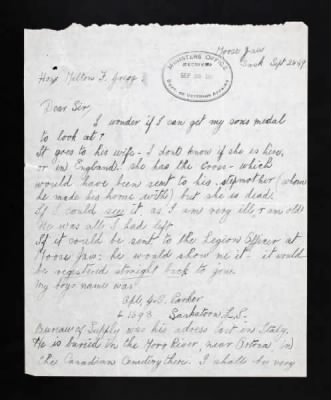 Moose Jaw
Sask Sept 24/49.
MINISTERS OFFICE
RECEIVED
SEP 28
DEPT. OF VETERANS AFFAIRS
Hon Milton F. Gregg
Dear Sir,
I wonder if I can get my sons medal
to look at?
It goes to his wife - I dont know if she is here,
or in England. she has the cross - which
would have been sent to his stepmother (whom
he made his home with) but she is dead.
If I could see it, as I am very ill & am old
He was all I had left
If it could be sent to the Legion Officer at
Moose Jaw: he would show me it. it would
be registered straight back to you.
my boys name was
Parker
L 1093 Saskatoon L.I.
Bureau of Supply was his adress lost in Italy.
He is buried in the Moro River, near Ortona in
the Canadian Cemetery there. I shall be very